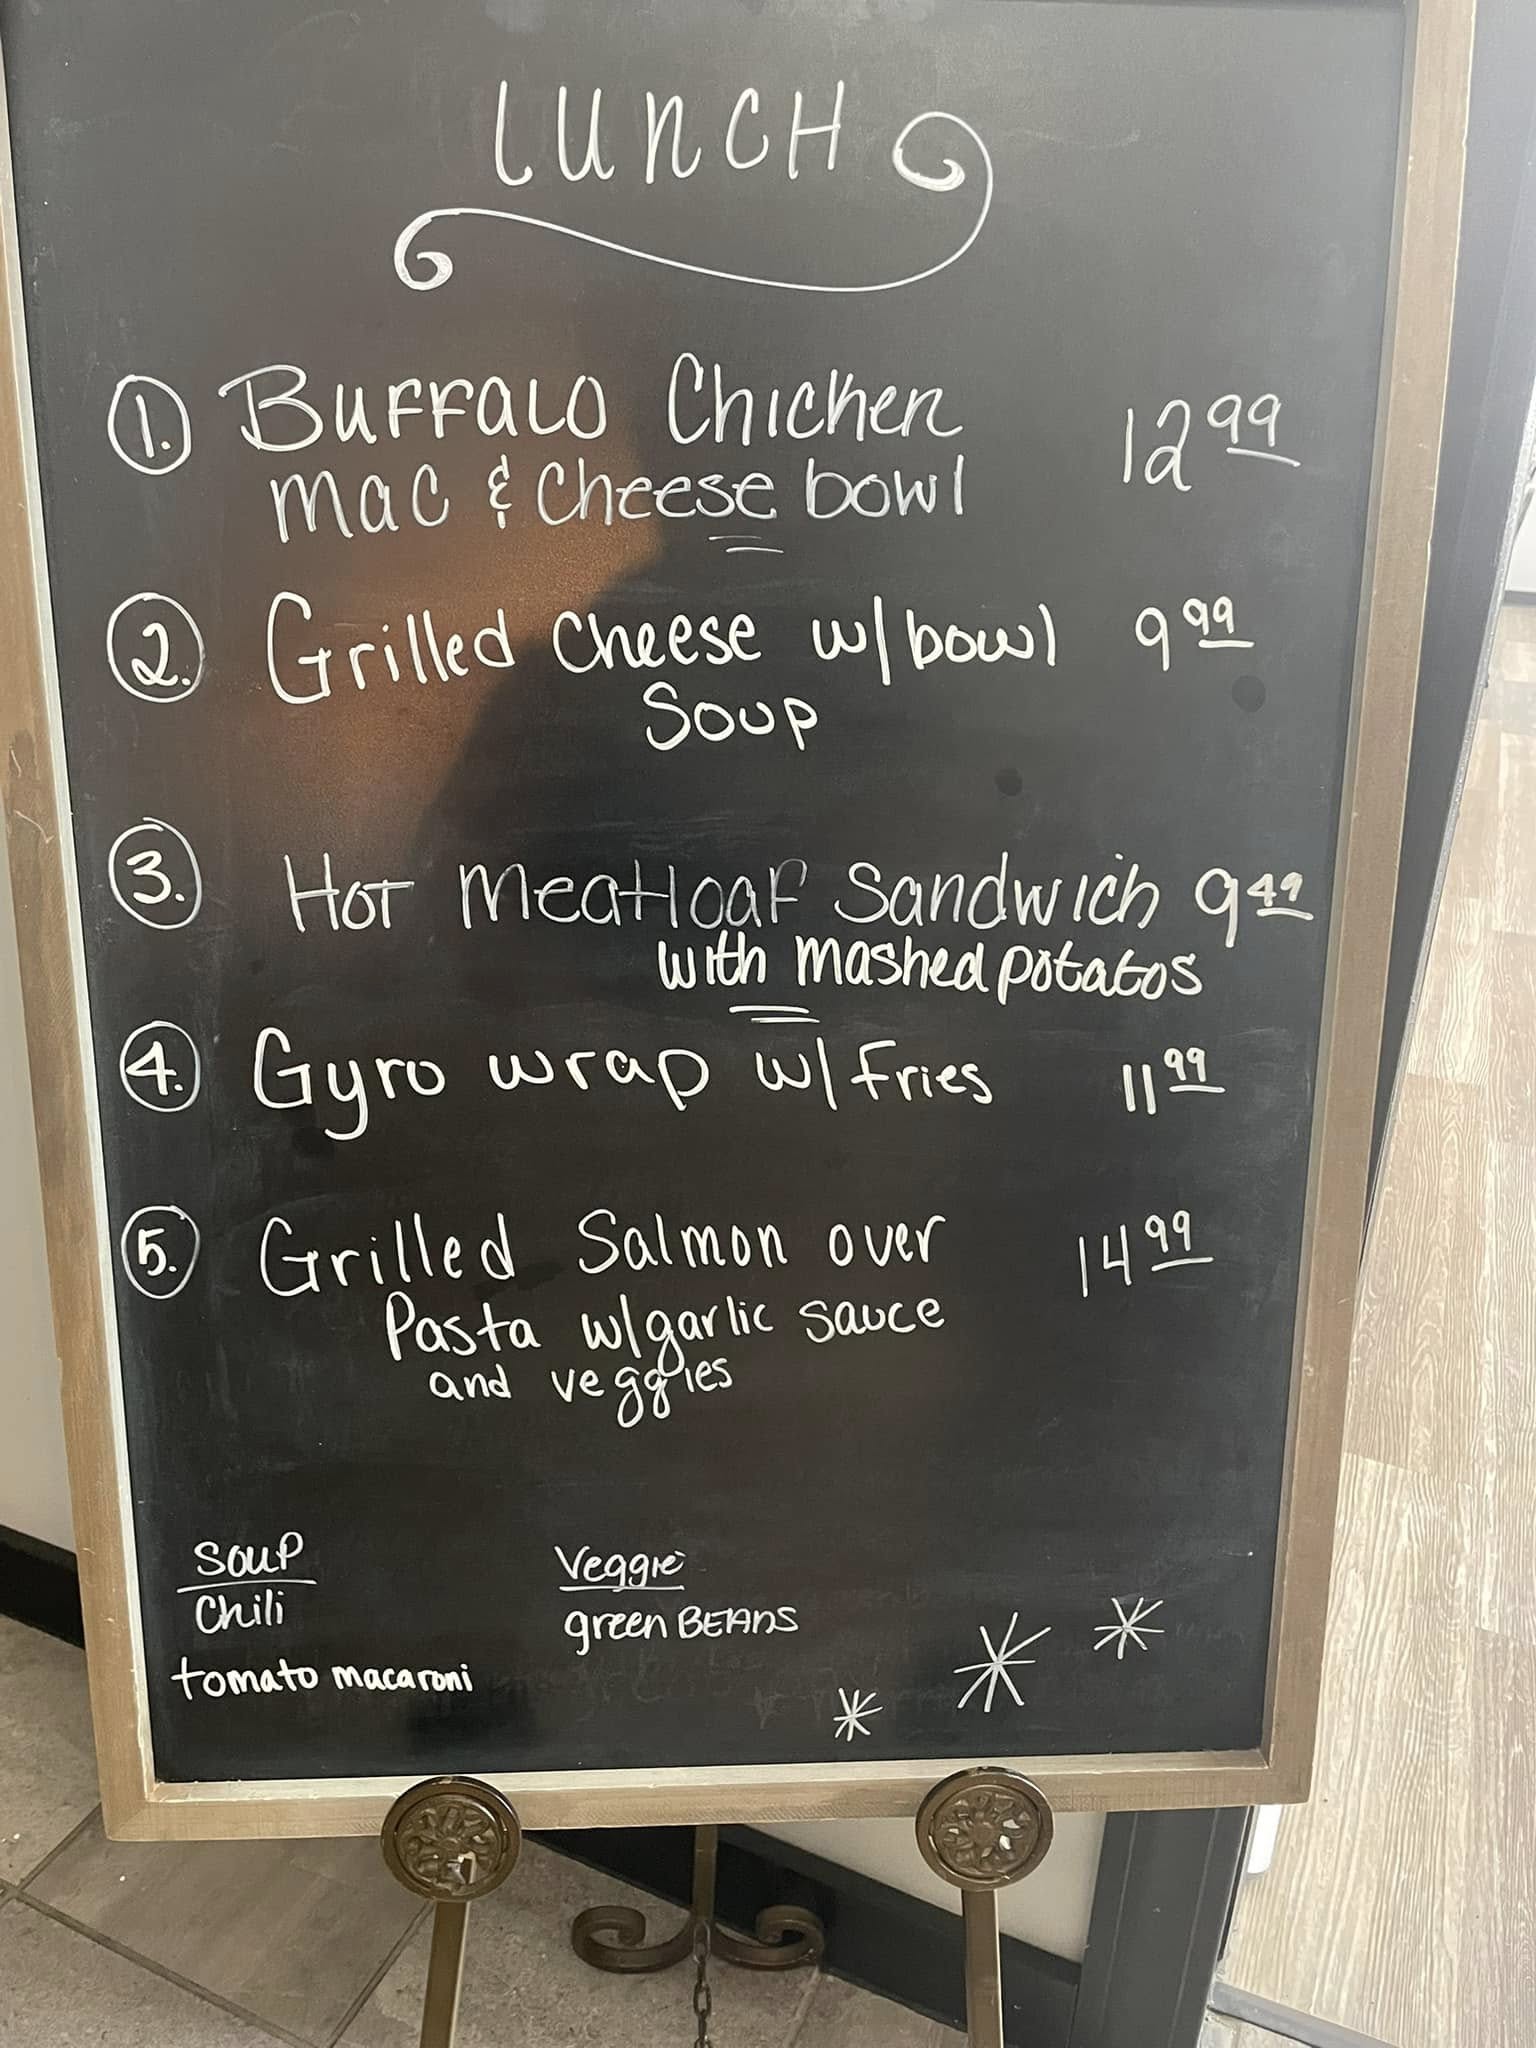 LUNCH
1. Buffalo Chicken 12.99
mac & cheese bowl
2. Grilled Cheese w/ bowl 9.99
Soup
3. Hot Meatloaf Sandwich 9.49
with mashed potatos
4. Gyro wrap w/ fries 11.99
5. Grilled Salmon over 14.99
Pasta w/ garlic sauce
and veggies
Soup
Chili
tomato macaroni
Veggie
green BEANS